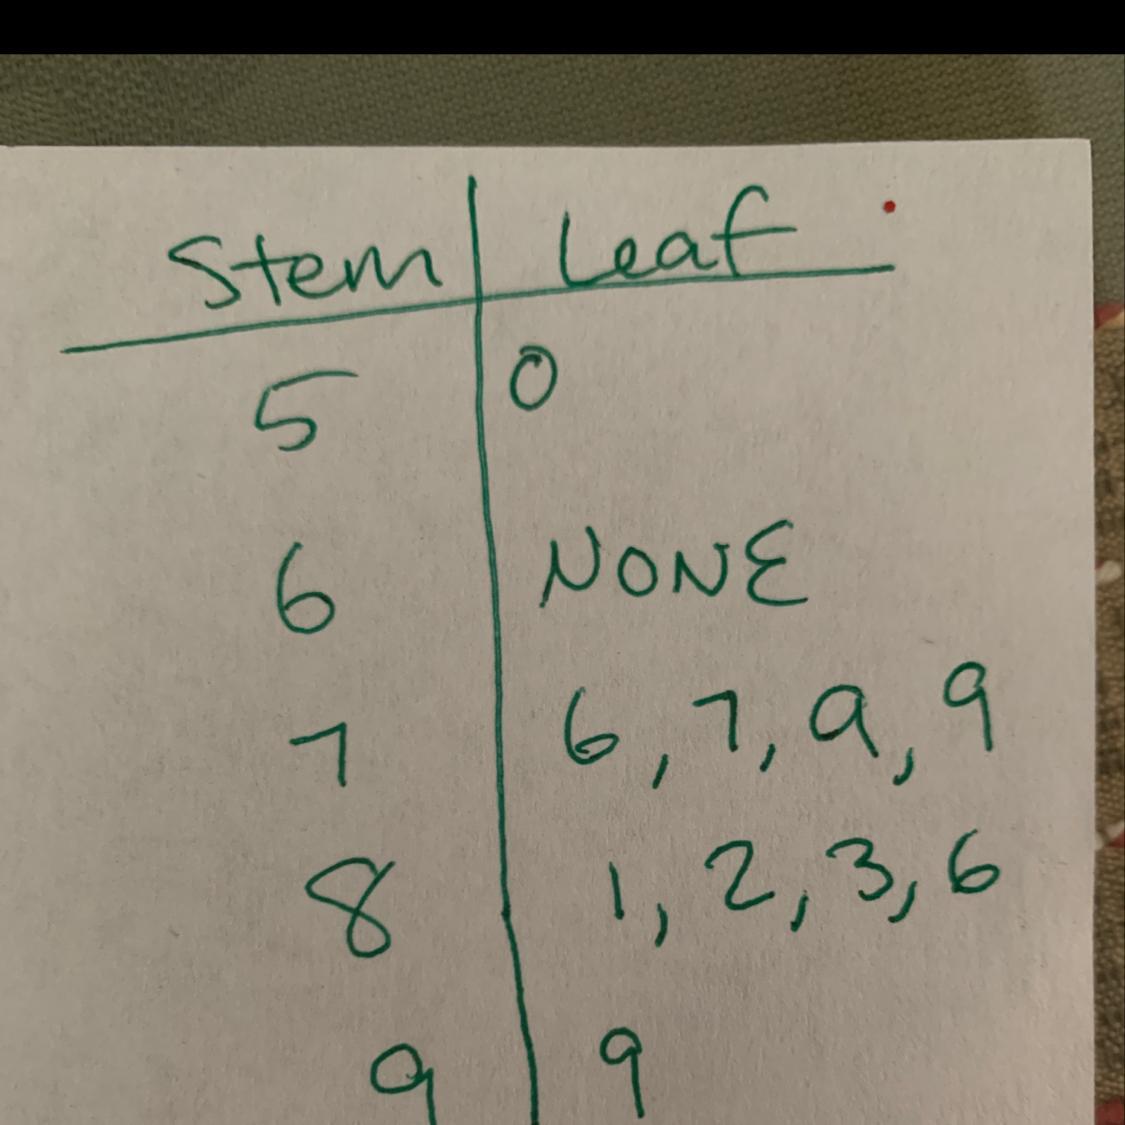 Stem Leaf
5 0
6 NONE
7 6, 7, 9, 9
8 1, 2, 3, 6
9 9